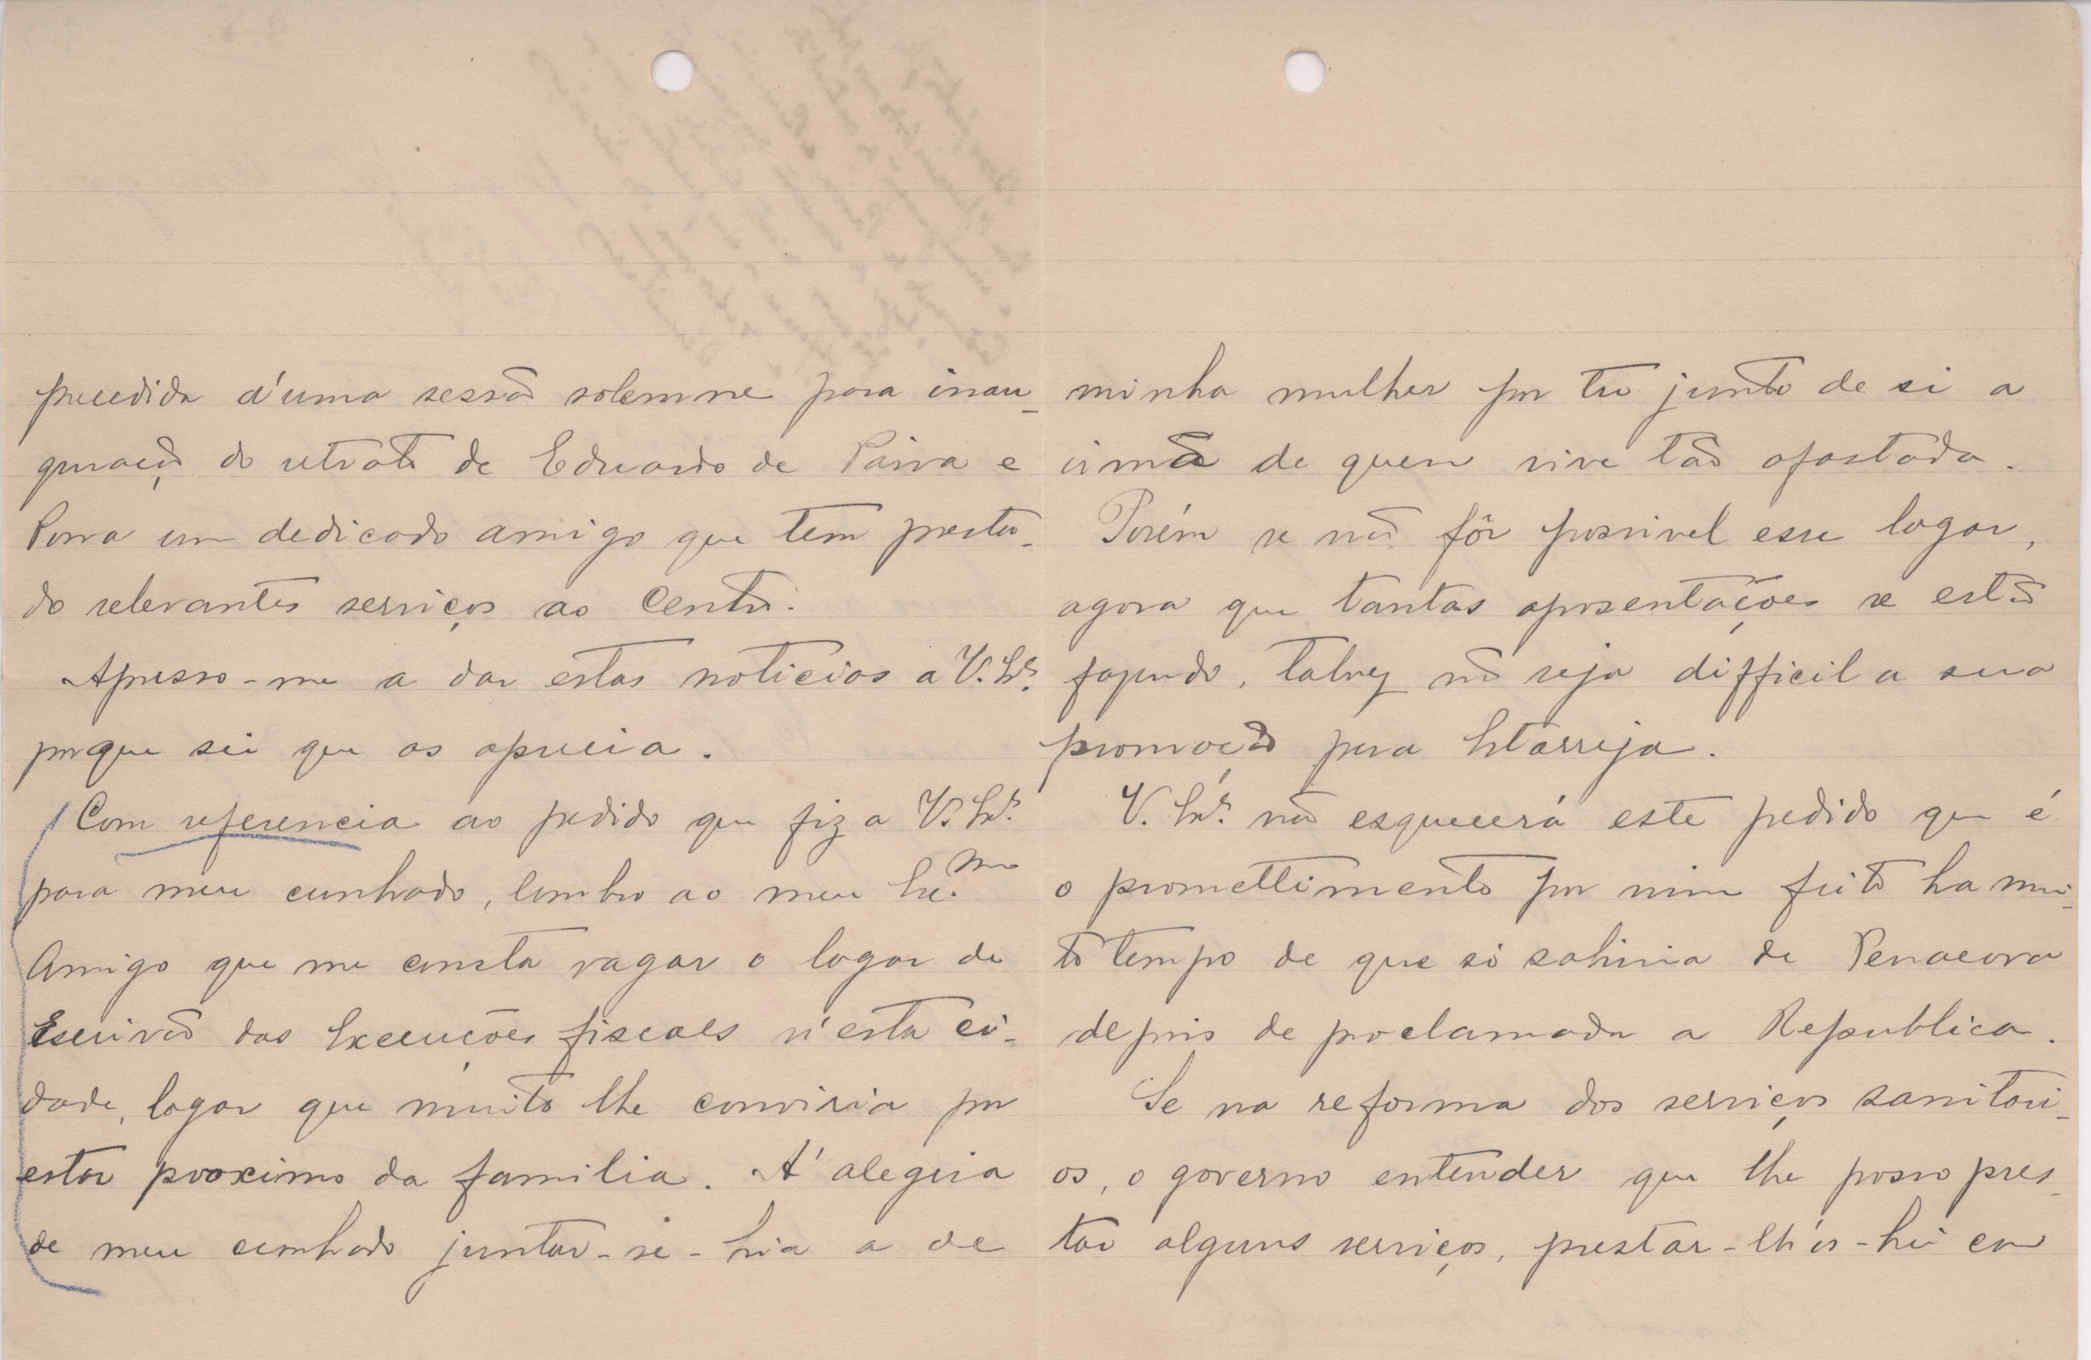 precedida d'uma sessão solemne para inau-
guração do retrato de Eduardo de Paiva e
Pona um dedicado amigo que tem presta-
do relevantes serviços ao Centro.
Apresso-me a dar estas noticias a V. Exª.
porque sei que as aprecia.
Com referencia ao pedido que fiz a V. Exª.
para meu cunhado, lembro ao meu Ex.mo
Amigo que me consta vagar o logar de
Escrivão das Execuções fiscaes n'esta ci-
dade, logar que muito lhe conviria por
estar proximo da familia. A' alegria
de meu cunhado juntar-se-hia a de
minha mulher por ter junto de si a
irmã de quem vive tão afastada.
Porém se não fôr possivel esse logar,
agora que tantas aposentações se estão
fazendo, talvez não seja difficil a sua
promoção para Estarreja.
V. Exª. não esquecerá este pedido que é
o promettimento por mim feito ha mui-
to tempo de que só sahiria de Penacova
depois de proclamada a Republica.
Se na reforma dos serviços sanitari-
os, o governo entender que lhe posso pres-
tar alguns serviços, prestar-lh'os-hei com